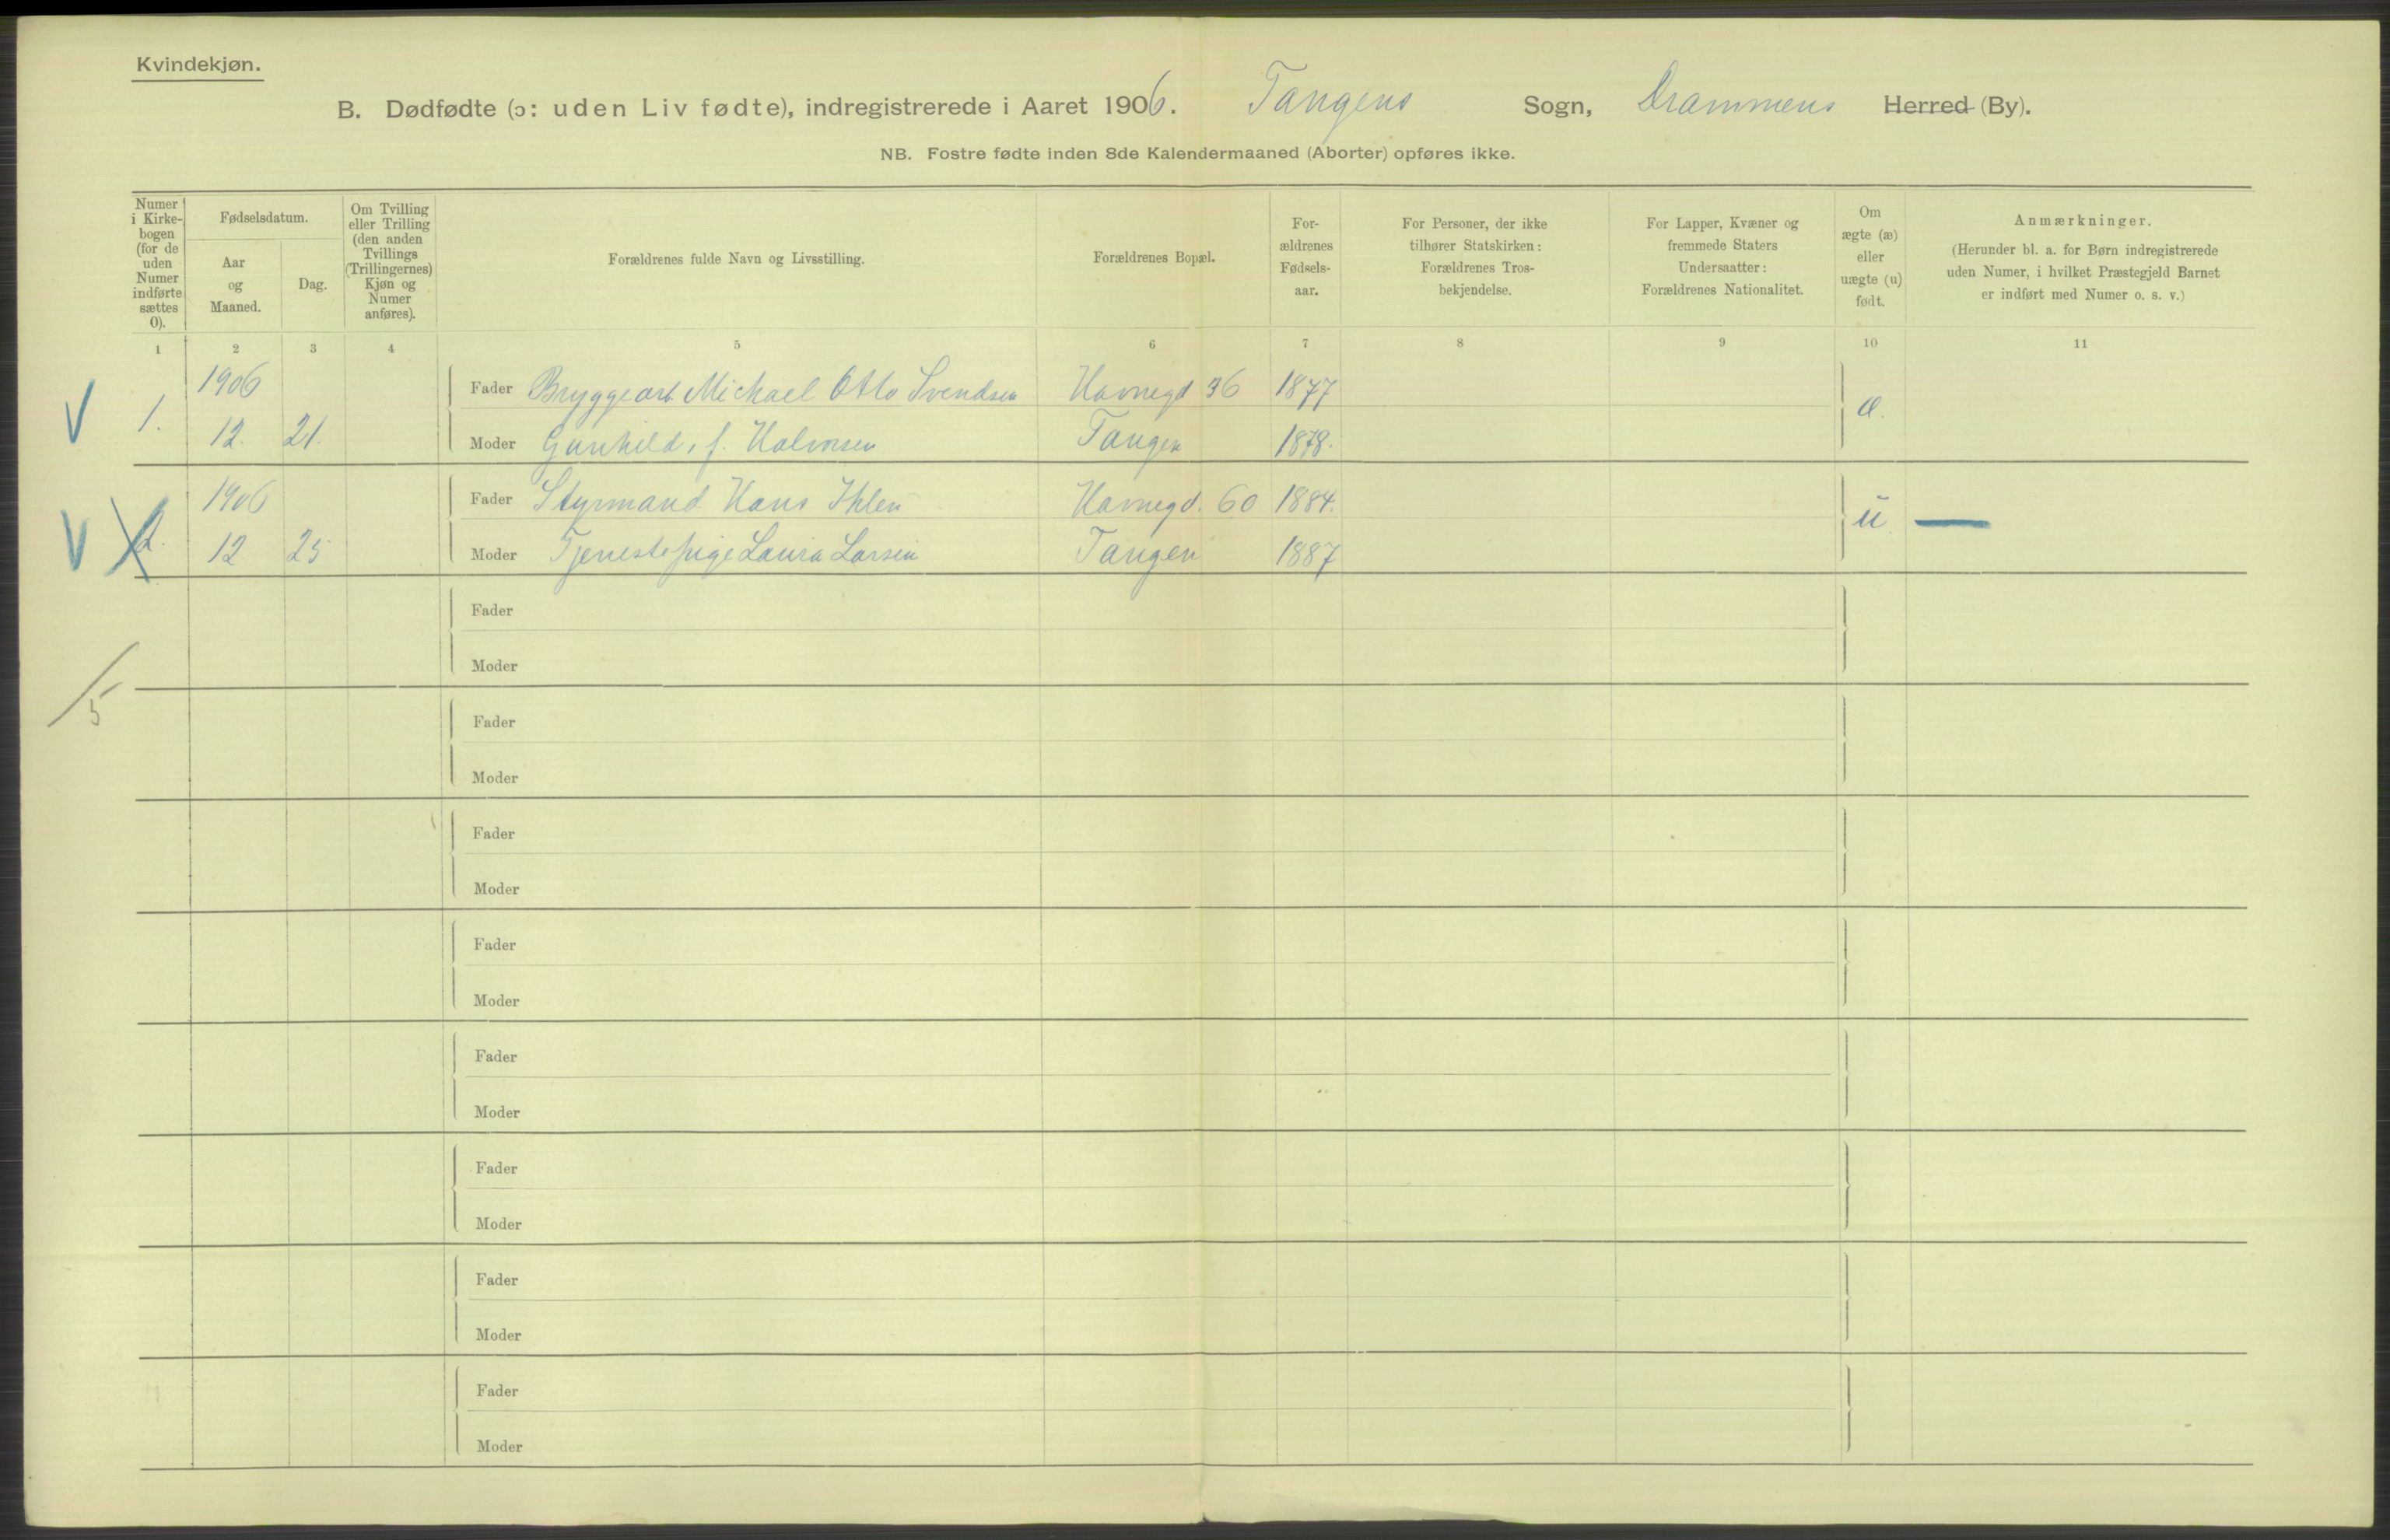 Kvindekjøn.
B. Dødfødte (ɔ: uden Liv fødte), indregistrerede i Aaret 1906. Tangens Sogn, Drammens Herred (By).
NB. Fostre fødte inden 8de Kalendermaaned (Aborter) opføres ikke.
Numer i Kirkebogen (for de uden Numer indførte sættes 0).
Fødselsdatum.
Aar og Maaned.
Dag.
Om Tvilling eller Trilling (den anden Tvillings (Trillingernes) Kjøn og Numer anføres).
Forældrenes fulde Navn og Livsstilling.
Forældrenes Bopæl.
Forældrenes Fødselsaar.
For Personer, der ikke tilhører Statskirken: Forældrenes Trosbekjendelse.
For Lapper, Kvæner og fremmede Staters Undersaatter: Forældrenes Nationalitet.
Om ægte (æ) eller uægte (u) født.
Anmærkninger.
(Herunder bl. a. for Børn indregistrerede uden Numer, i hvilket Præstegjeld Barnet er indført med Numer o. s. v.)
1 2 3 4 5 6 7 8 9 10 11
V 1. 1906 Fader Bryggearb. Michael Otto Svendsen Havnegd 36 1877 æ.
12. 21. Moder Gunhild, f. Halvorsen Tangen 1878.
V 2. 1906 Fader Styrmand Hans Ihlen Havnegd. 60 1884. u
12 25 Moder Tjenestepige Laura Larsen Tangen 1887
Fader
Moder
5
Fader
Moder
Fader
Moder
Fader
Moder
Fader
Moder
Fader
Moder
Fader
Moder
Fader
Moder